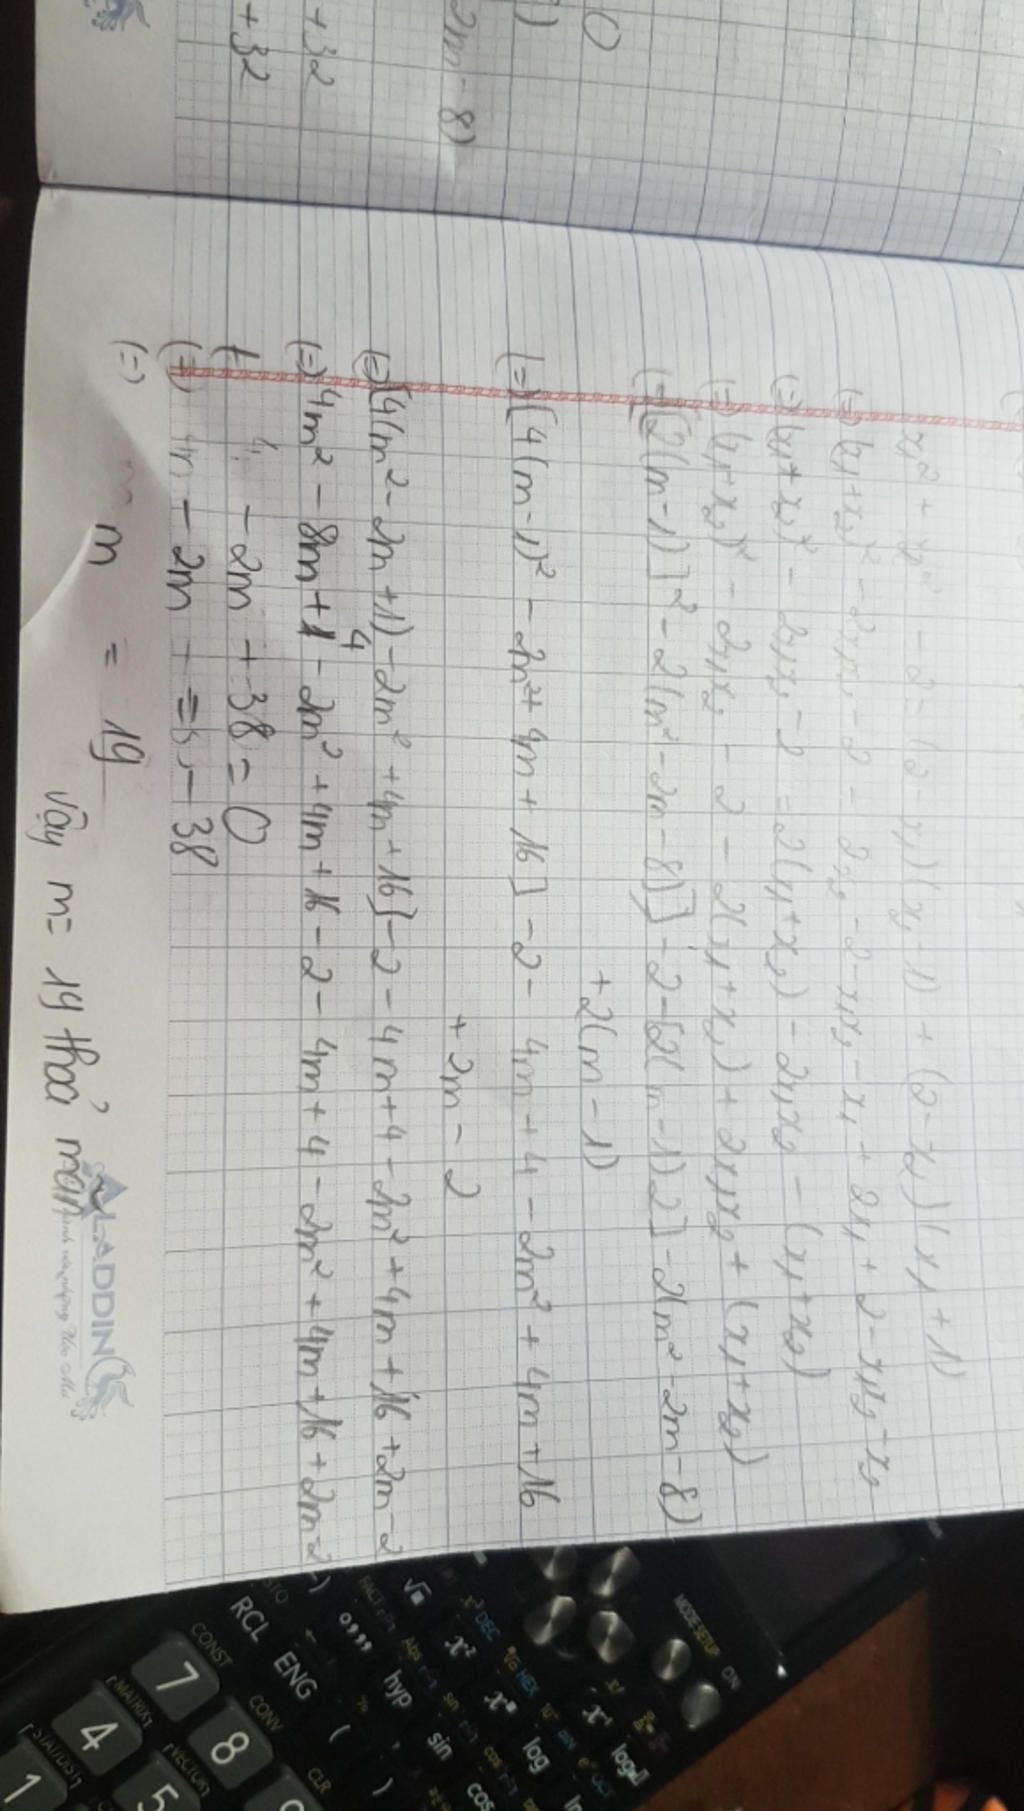 + 32
+ 32
2m - 8)
)
0
x₁² + x₂² - 2 = (2 - x₁)(x₂ - 1) + (2 - x₂)(x₁ + 1)
(=) (x₁ + x₂)² - 2x₁x₂ - 2 = 2x₂ - 2 - x₁x₂ - x₁ + 2x₁ + 2 - x₁x₂ - x₂
(=) (x₁ + x₂)² - 2x₁x₂ - 2 = 2(x₁ + x₂) - 2x₁x₂ - (x₁ + x₂)
(=) (x₁ + x₂)² - 2x₁x₂ - 2 - 2(x₁ + x₂) + 2x₁x₂ + (x₁ + x₂)
(=) [2(m - 1)]² - 2(m² - 2m - 8)] - 2 - [2(m - 1)2] - 2(m² - 2m - 8)
+ 2(m - 1)
(=) [4(m - 1)² - 2m² + 4m + 16] - 2 - 4m + 4 - 2m² + 4m + 16
+ 2m - 2
(=) [4(m² - 2m + 1) - 2m² + 4m + 16] - 2 - 4m + 4 - 2m² + 4m + 16 + 2m - 2
(=) 4m² - 8m + 4 - 2m² + 4m + 16 - 2 - 4m + 4 - 2m² + 4m + 16 + 2m - 2
- 2m + 38 = 0
- 2m = - 38
(=) m = 19
Vậy m = 19 thoả mãn
ALADDIN
MODE SETUP ON
x! x⁻¹ log
HEX x^■ log ln
DEC x² hyp sin cos
√■ FACT Abs
STO RCL ENG ( )
CONST CONV CLR
7 8
MATRIX VECTOR
4 5
1